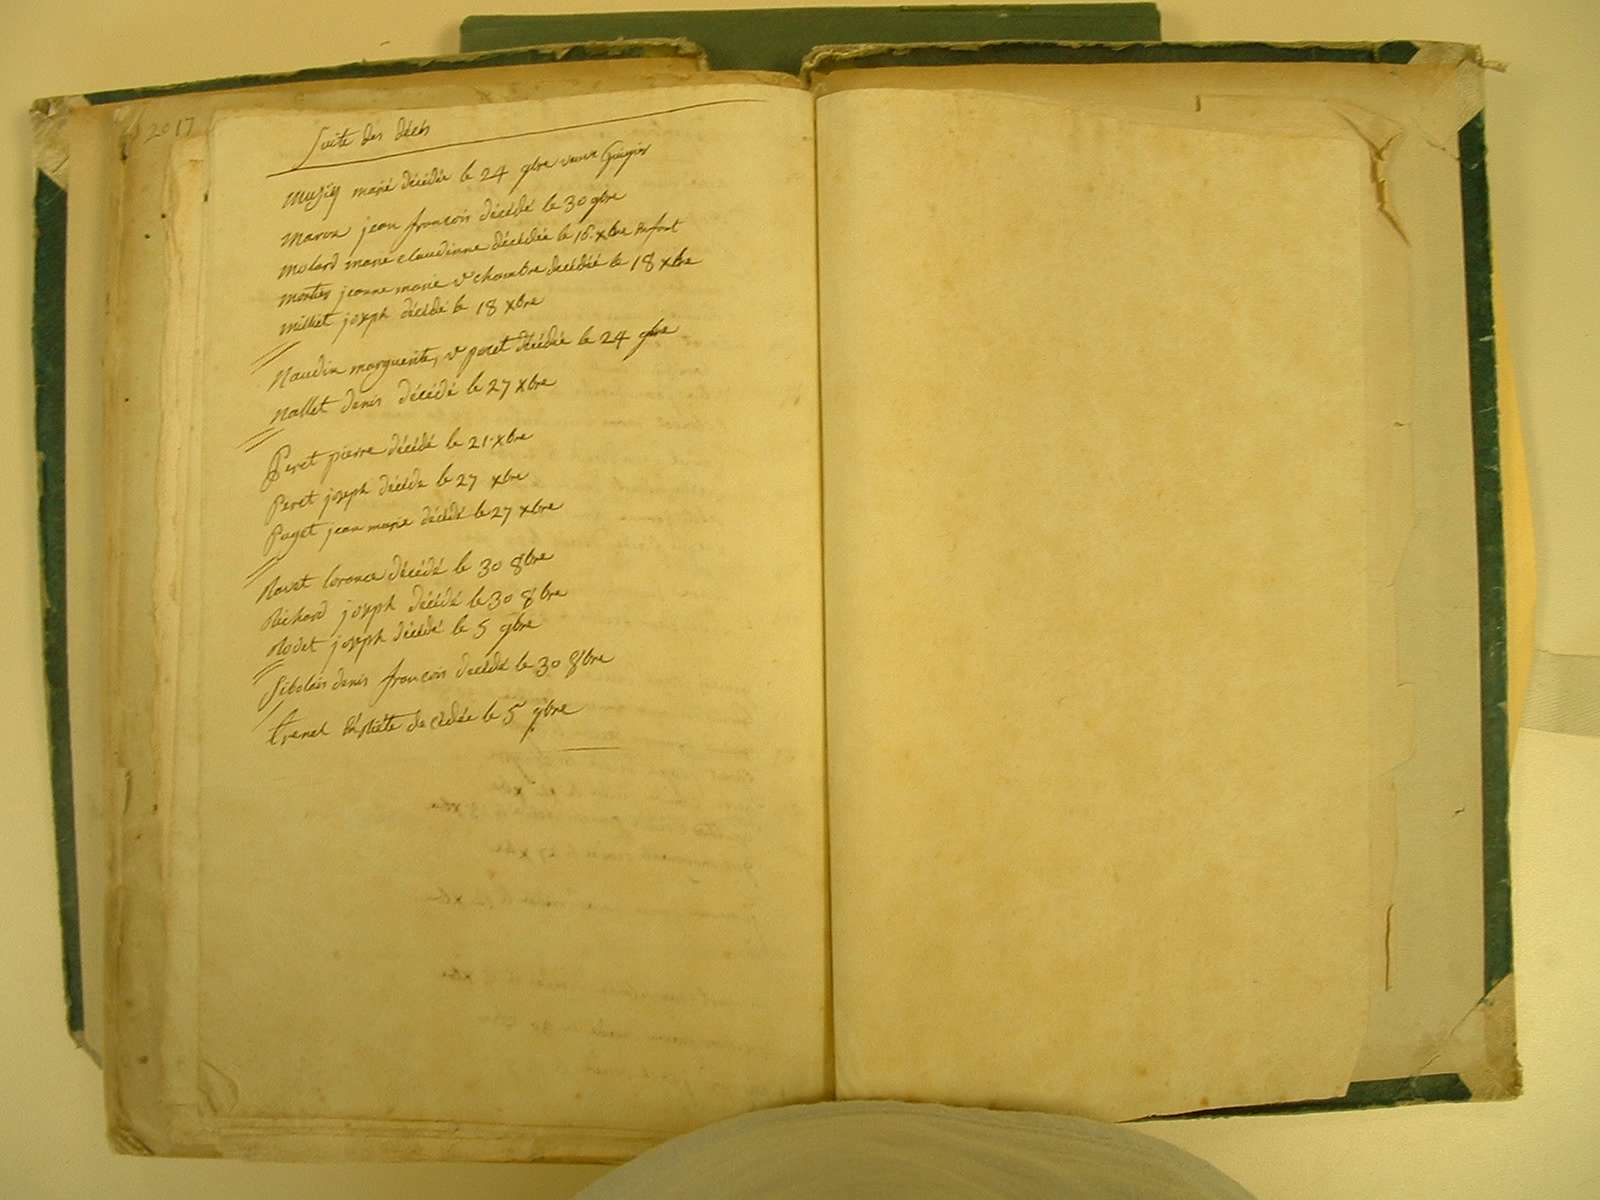 2017
Suite des décés
marie décédée le 24 9bre veuve
Maron jean françois décédé le 30 9bre
Molard marie claudinne décédée le 16 xbre enfant
Mortier jeanne marie v chambre décédée le 18 xbre
Milliet joseph décédé le 18 xbre
Naudin marguerite, v peret décédée le 24 9bre
Nallet denis décédé le 27 xbre
Peret pierre décédé le 21 xbre
Peret joseph décédé le 27 xbre
Paget jean marie décédé le 27 xbre
Ravet lorance décédé le 30 8bre
Richard joseph décédé le 30 8bre
Rodet joseph décédé le 5 9bre
denis françois décédé le 30 8bre
trenel décédée le 5 9bre